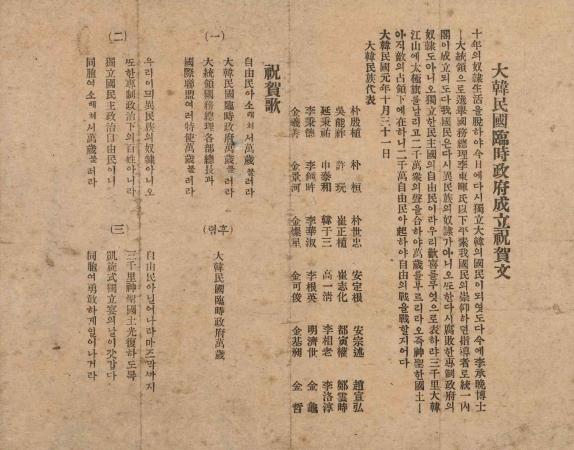 大韓民國臨時政府成立祝賀文
十年의奴隷生活을脫하야今日에다시獨立大韓의國民이되엿도다今에李承晩博士
ㅣ大統領으로選擧國務總理李東輝氏以下平素我國民의崇仰하던指導者로統一內
閣이成立되도다我國民은다시異民族의奴隷가아니오또한다시腐敗한專制政府의
奴隷도아니오獨立한民主國의自由民이라우리歡喜를무엇으로表하랴三千里大韓
江山에太極旗를날니고二千萬衆의聲을合하야萬歲를부르리라오즉神聖한國土ㅣ
아직敵의占領下에在하니二千萬自由民아起하야自由의戰을戰할지어다
大韓民國元年十月三十一日
大韓民族代表
朴殷植 朴桓 朴世忠 安定根 安宗述 趙宣弘
吳能祚 許玩 崔正植 崔志化 都寅權 鄭雲時
延秉祐 申泰和 韓于三 高一淸 李相老 李洛淳
李秉德 李鍾時 李華淑 李根英 明濟世 金龜
金羲善 金景河 金燦星 金可俊 金基昶 金哲
祝賀歌
(一)
自由民아소래쳐서萬歲불러라
大韓民國臨時政府萬歲불러라
大統領國務總理各部總長과
國際聯盟여러特使萬歲불러라
(후렴)
大韓民國臨時政府萬歲
(二)
우리이믜異民族의奴隷아니오
또한專制政治下의百姓아니라
獨立國民主政治自由民이니
同胞여소래쳐서萬歲불러라
(三)
自由民아닐어나라마즈막까지
三千里神聖國土光復하도록
凱旋式獨立宴의날이갓갑다
同胞여勇敢하게닐어나거라